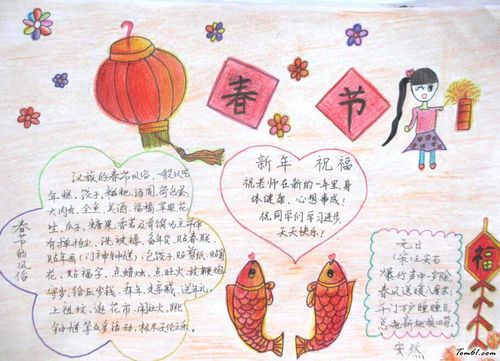 春节
新年 祝福
祝老师在新的一年里,身
体健康、心想事成!
祝同学们学习进步,
天天快乐!
春节的风俗
汉族的春节风俗,一般以吃
年糕、饺子、糍粑、汤圆、荷包蛋、
大肉丸、全鱼、美酒、福橘、苹果、花
生、瓜子、糖果、香茗及肴馔为主;并伴
有掸扬尘、洗被褥、备年货、贴春联、
贴年画、
贴剪纸、贴窗
花、贴福字、点蜡烛、点旺火、放鞭炮、
守岁、给压岁钱、拜年、走亲戚、送年礼、
上祖坟、逛花市、闹社火、跳
钟馗等众多活动,极尽天伦之乐。
元日
宋·王安石
爆竹声中一岁除
春风送暖入屠苏
千门万户曈曈日
总把新桃换旧符
福
安然
Tom61.com